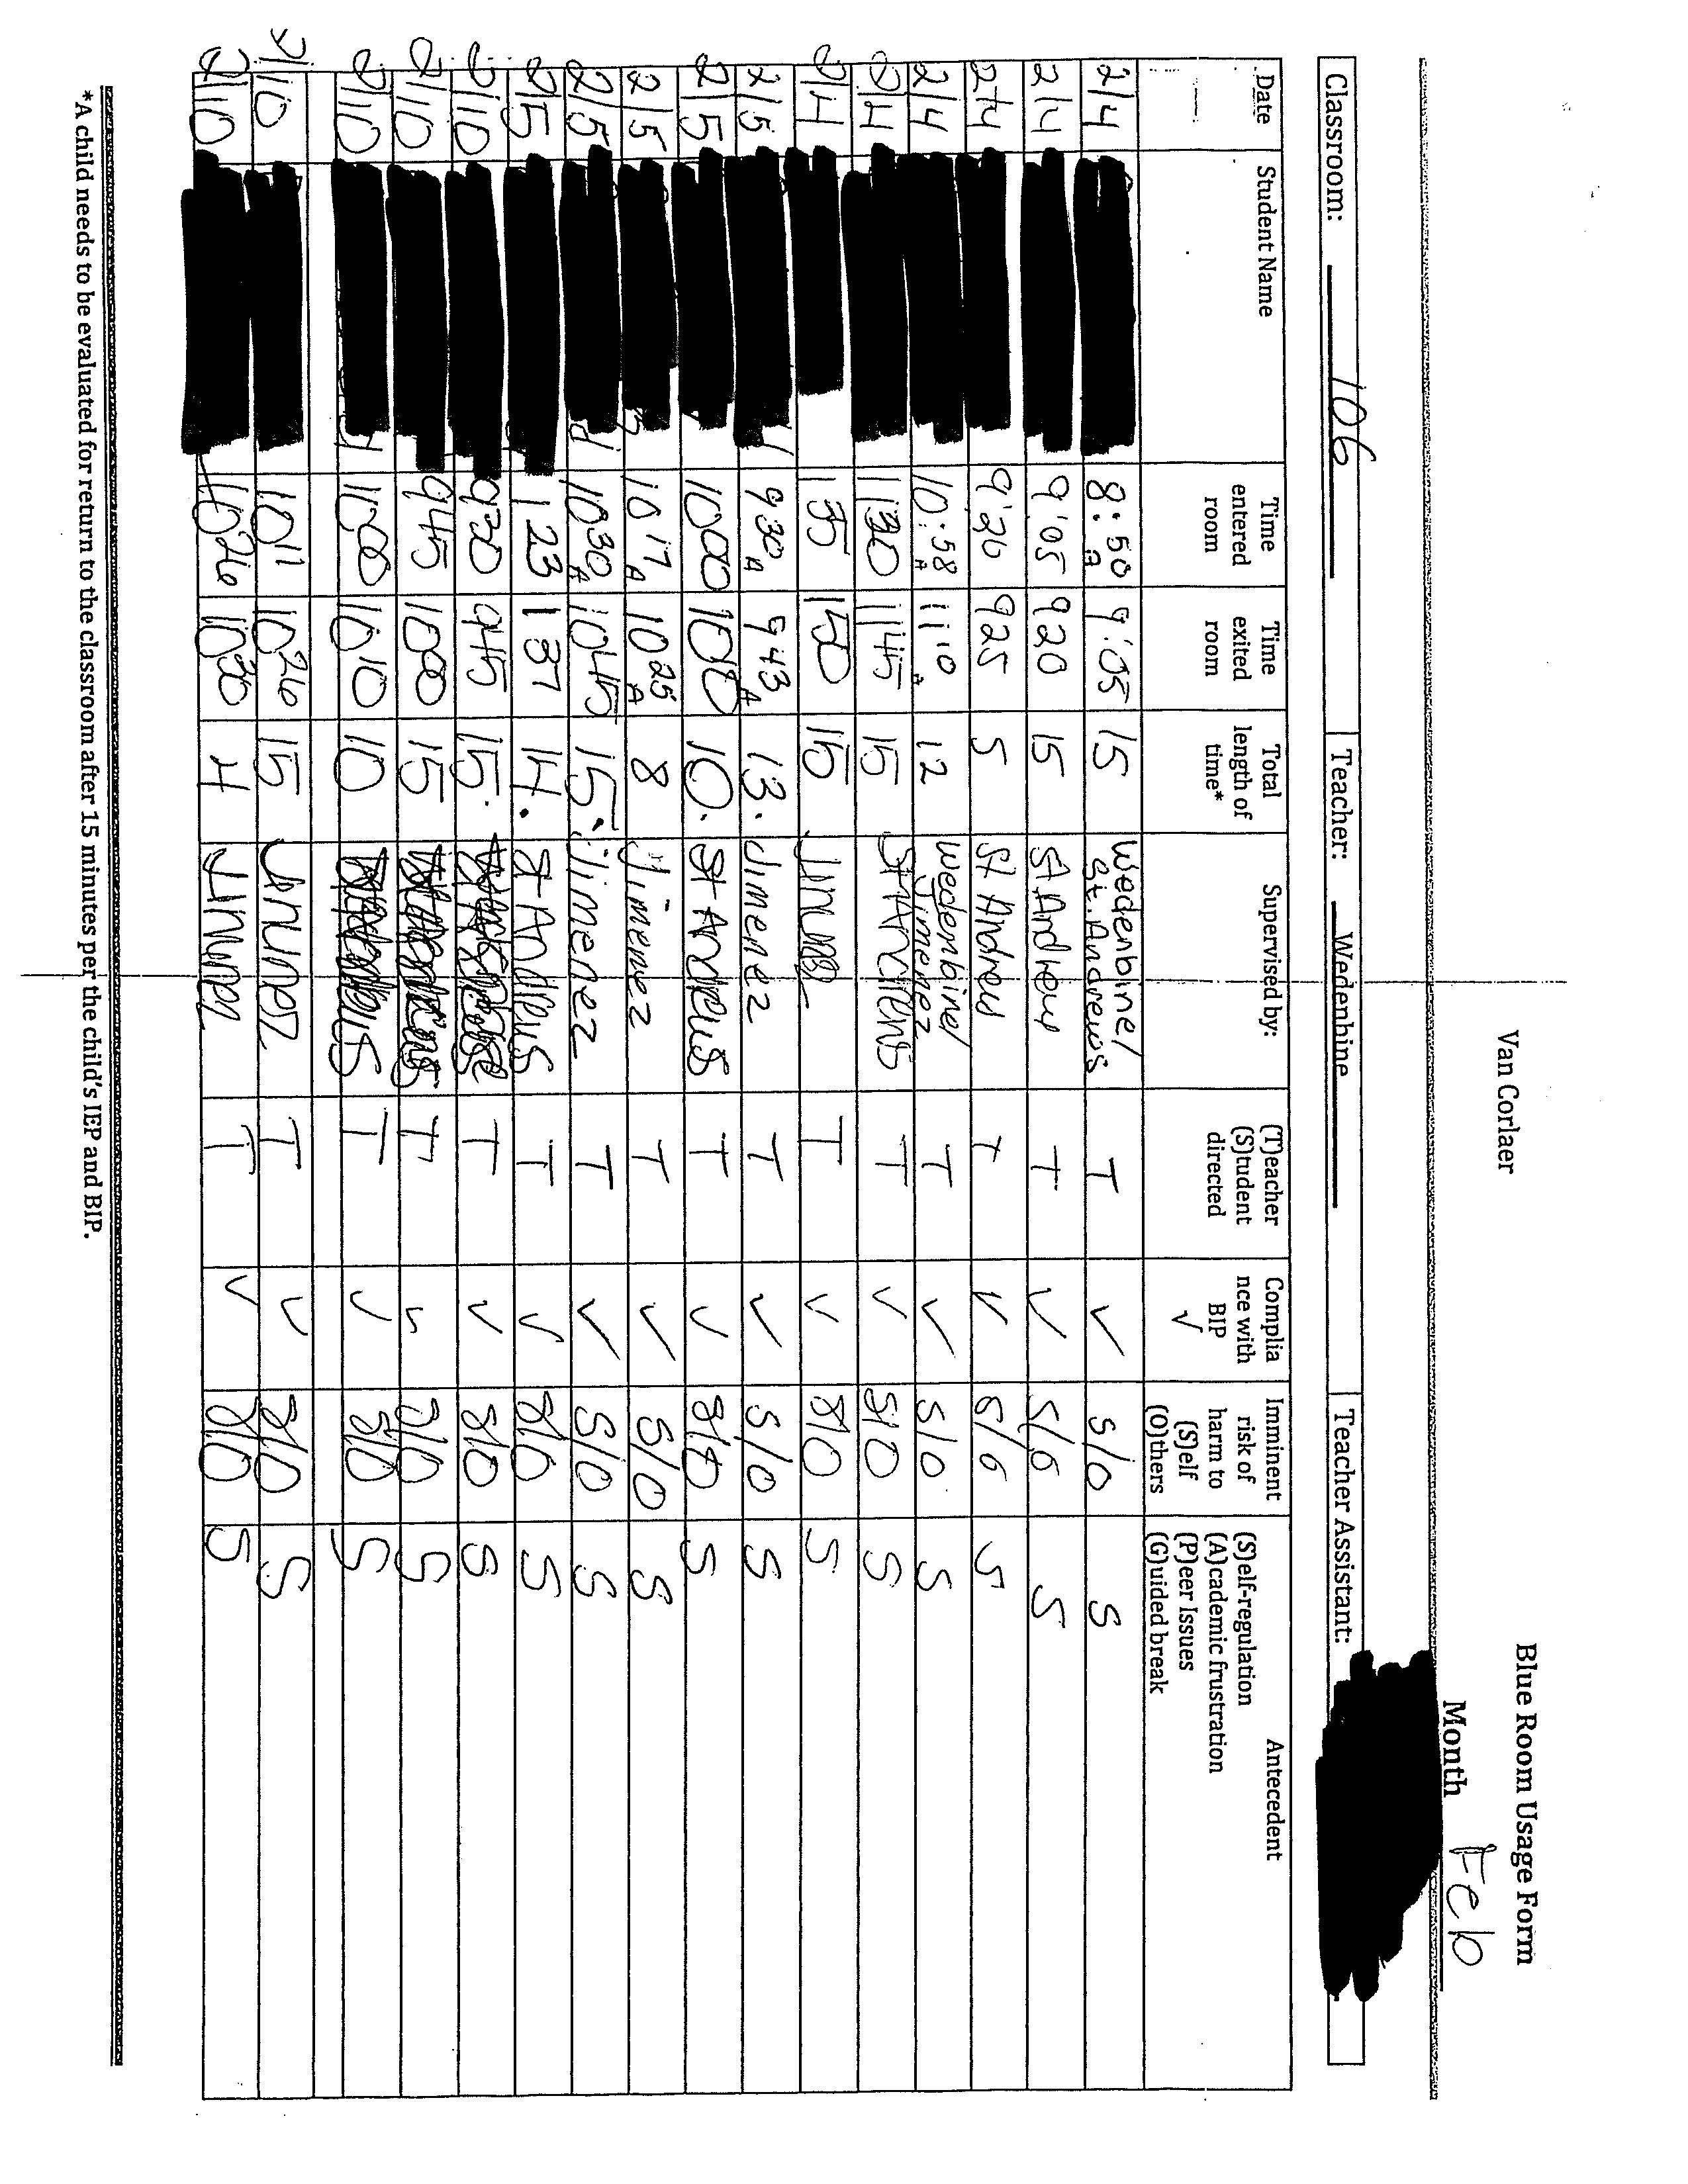 Van Corlaer
Blue Room Usage Form
Month Feb
Classroom: 106 Teacher: Wedenbine Teacher Assistant:
Date Student Name Time entered room Time exited room Total length of time* Supervised by: (T)eacher (S)tudent directed Complia nce with BIP √ Imminent risk of harm to (S)elf (O)thers Antecedent (S)elf-regulation (A)cademic frustration (P)eer Issues (G)uided break
2/4 8:50 A 9:05 15 Wedenbine/ St. Andrews T ✓ S/O S
2/4 9:05 920 15 St Andrew T ✓ S/O S
2/4 9:20 925 5 St Andrew T ✓ S/O S
2/4 10:58 A 1110 A 12 Wedenbine/ Jimenez T ✓ S/O S
2/4 1130 1145 15 St Andrews T ✓ S/O S
2/4 135 150 15 Jimenez T ✓ S/O S
2/5 930 A 943 A 13. Jimenez T ✓ S/O S
2/5 1000 1010 10. St Andrews T ✓ S/O S
2/5 1017 A 1025 A 8 Jimenez T ✓ S/O S
2/5 1030 A 1045 15. Jimenez T ✓ S/O S
2/5 123 137 14. St Andrews T ✓ S/O S
2/10 930 945 15. T ✓ S/O S
2/10 945 1000 15 T ✓ S/O S
2/10 1000 1010 10 T ✓ S/O S
2/10 1011 1026 15 Jimenez T ✓ S/O S
2/10 1026 1030 4 Jimenez T ✓ S/O S
*A child needs to be evaluated for return to the classroom after 15 minutes per the child's IEP and BIP.